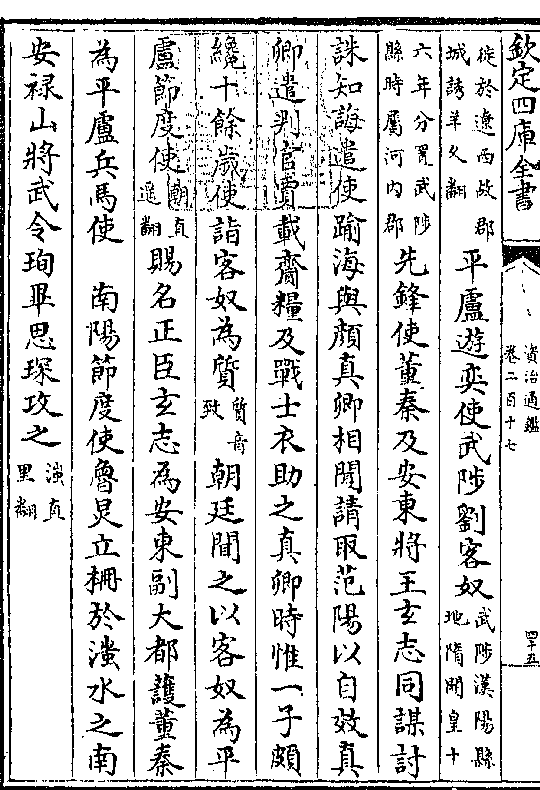 欽定四庫全書
資治通鑑
卷二百十七
四十五
徙於遼西故郡城誘羊久翻平盧遊奕使武陟劉客奴武陟漢陽縣地隋開皇十
六年分置武陟縣時屬河內郡先鋒使董秦及安東將王玄志同謀討
誅知誨遣使踰海與顔真卿相聞請取范陽以自效真
卿遣判官賈載齎糧及戰士衣助之真卿時惟一子頗
纔十餘歲使詣客奴為質質音致朝廷聞之以客奴為平
盧節度使朝直遥翻賜名正臣玄志為安東副大都護董秦
為平盧兵馬使　南陽節度使魯炅立柵於滍水之南
安禄山將武令珣畢思琛攻之滍直里翻